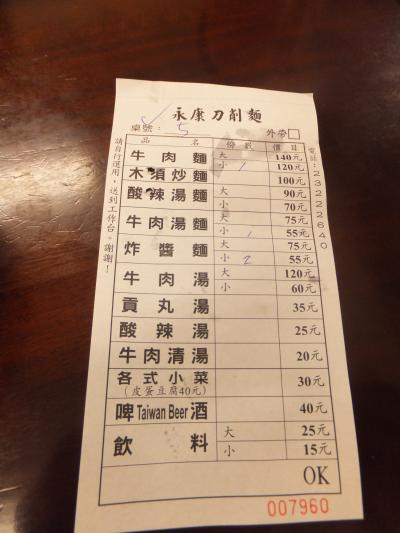 永康刀削麵
桌號: 5
外帶
品名 份數 價目
牛肉麵 大 140元
小 1 120元
木須炒麵 100元
酸辣湯麵 大 90元
小 70元
牛肉湯麵 大 75元
小 1 55元
炸醬麵 大 75元
小 2 55元
牛肉湯 大 120元
小 60元
貢丸湯 35元
酸辣湯 25元
牛肉清湯 20元
各式小菜 30元
(皮蛋豆腐40元)
啤Taiwan Beer酒 40元
飲料 大 25元
小 15元
OK
007960
請自行運用,送到工作台。謝謝!
電話:23222640